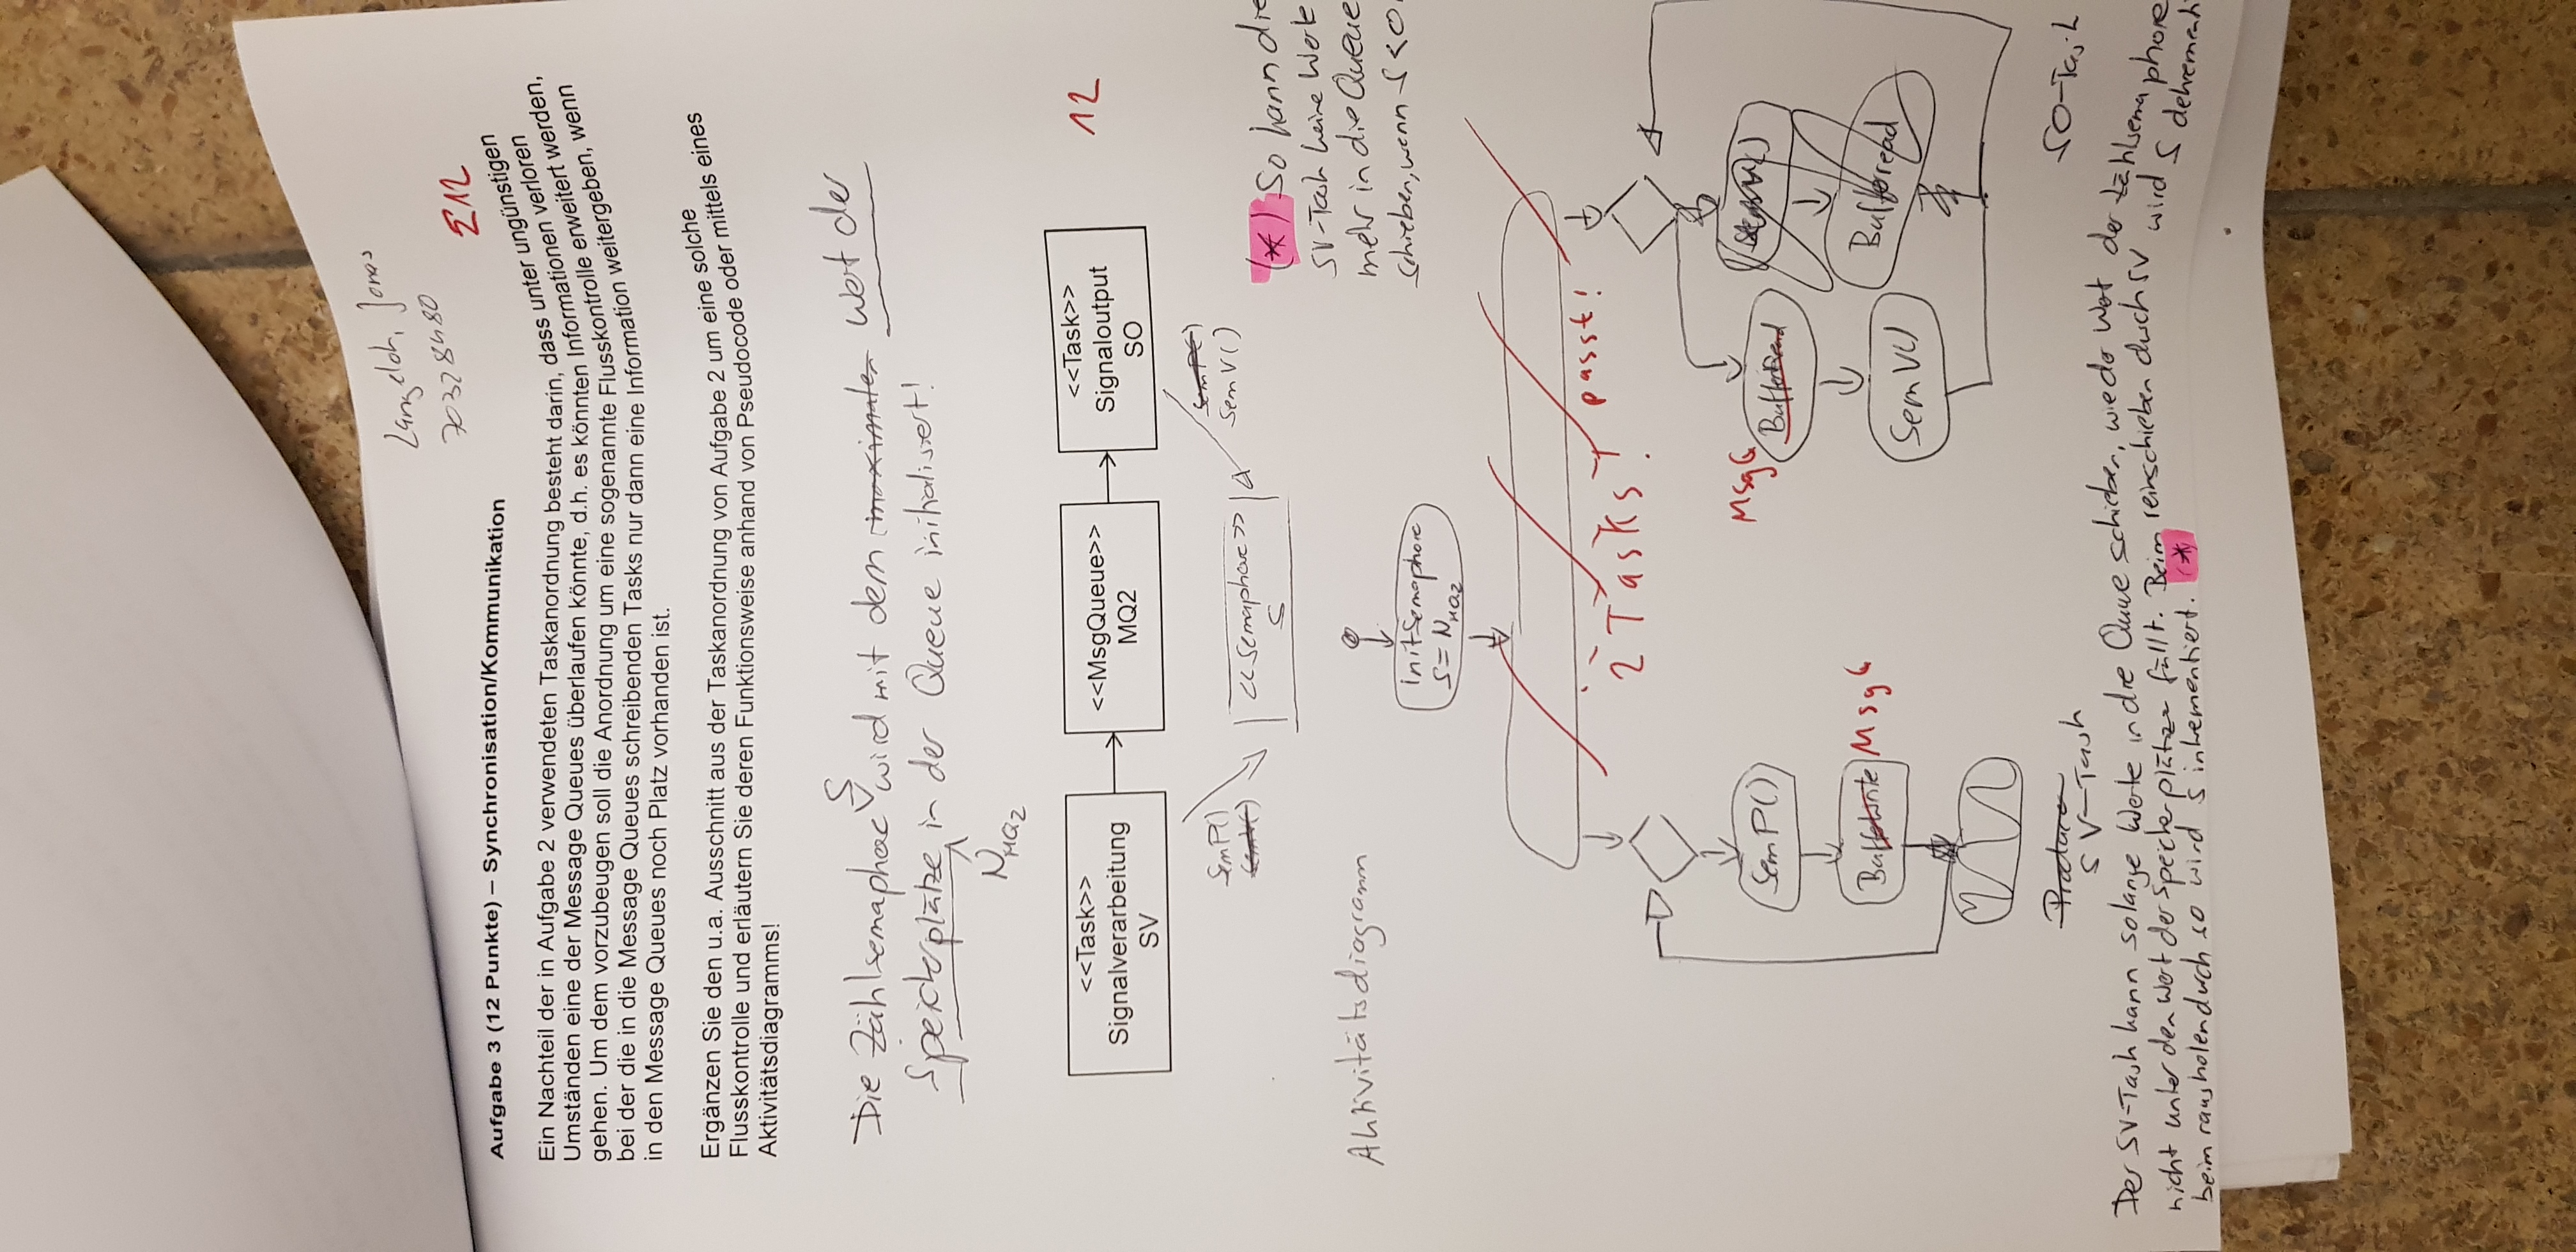 Langeloh, Jonas
70328480
Σ12
Aufgabe 3 (12 Punkte) – Synchronisation/Kommunikation
Ein Nachteil der in Aufgabe 2 verwendeten Taskanordnung besteht darin, dass unter ungünstigen
Umständen eine der Message Queues überlaufen könnte, d.h. es könnten Informationen verloren
gehen. Um dem vorzubeugen soll die Anordnung um eine sogenannte Flusskontrolle erweitert werden,
bei der die in die Message Queues schreibenden Tasks nur dann eine Information weitergeben, wenn
in den Message Queues noch Platz vorhanden ist.
Ergänzen Sie den u.a. Ausschnitt aus der Taskanordnung von Aufgabe 2 um eine solche
Flusskontrolle und erläutern Sie deren Funktionsweise anhand von Pseudocode oder mittels eines
Aktivitätsdiagramms!
S
Die Zählsemaphore wird mit dem maximalen Wert der
Speicherplätze in der Queue initialisiert!
N MQ2
<<Task>>
Signalverarbeitung
SV
<<MsgQueue>>
MQ2
<<Task>>
Signaloutput
SO
12
SemP()
SemV()
<<Semaphore>>
S
SemP()
SemV()
(*) So kann die
SV-Task keine Werte
mehr in die Queue
schieben, wenn S<0.
Aktivitätsdiagramm
InitSemaphore
S = N MQ2
2 Tasks! passt!
SemP()
Bufferwrite MsgQ
MsgQ
Bufferread
SemV()
SemV()
Bufferread
Producer
SV-Task
SO-Task
Der SV-Task kann solange Werte in die Queue schieben, wie der Wert der Zählsemaphore
nicht unter den Wert der Speicherplätze fällt. Beim reinschieben durch SV wird S dekrementi
beim rausholen durch SO wird S inkrementiert. (*)